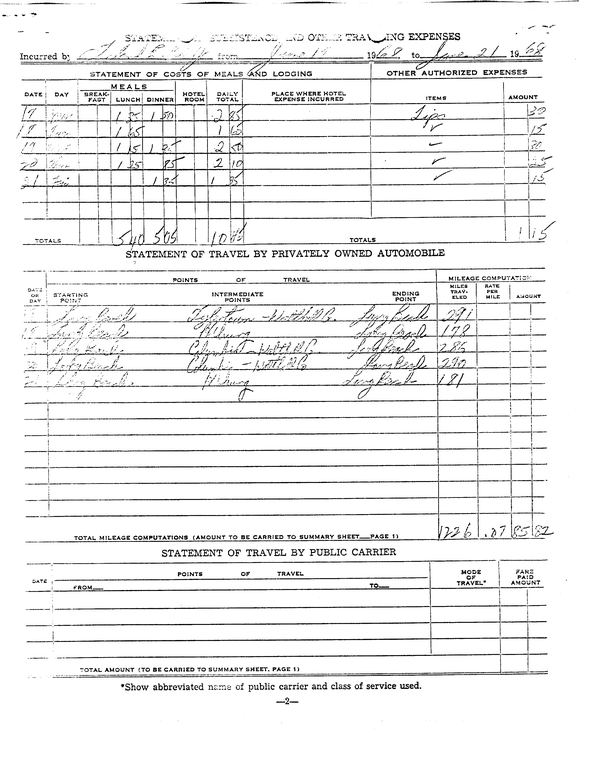 STATEMENT OF SUBSISTENCE AND OTHER TRAVELING EXPENSES
Incurred by from June 17 1968 to June 21 1968
STATEMENT OF COSTS OF MEALS AND LODGING OTHER AUTHORIZED EXPENSES
MEALS
DATE DAY BREAK-FAST LUNCH DINNER HOTEL ROOM DAILY TOTAL PLACE WHERE HOTEL EXPENSE INCURRED ITEMS AMOUNT
17 1 35 1 50 2 85 Tips 30
1 65 1 65 ✓ 15
19 1 15 2 50 30
20 1 25 85 2 10 ✓ 25
21 Fri 1 35 1 35 ✓ 15
TOTALS 5 40 5 05 10 45 TOTALS 1 15
STATEMENT OF TRAVEL BY PRIVATELY OWNED AUTOMOBILE
POINTS OF TRAVEL MILEAGE COMPUTATION
DATE OR DAY STARTING POINT INTERMEDIATE POINTS ENDING POINT MILES TRAV-ELED RATE PER MILE AMOUNT
Long Beach Long Beach 291
Long Beach Long Beach 178
Long Beach Long Beach 285
Long Beach Long Beach 290
Long Beach Long Beach 181
TOTAL MILEAGE COMPUTATIONS (AMOUNT TO BE CARRIED TO SUMMARY SHEET PAGE 1) 1226 .07 85 82
STATEMENT OF TRAVEL BY PUBLIC CARRIER
DATE POINTS OF TRAVEL MODE OF TRAVEL* FARE PAID AMOUNT
FROM TO
TOTAL AMOUNT (TO BE CARRIED TO SUMMARY SHEET, PAGE 1)
*Show abbreviated name of public carrier and class of service used.
—2—